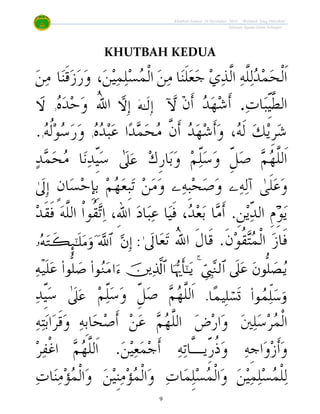 Khutbah Jumaat 28 November 2014: "Hikmah Yang Diberkati"
Jabatan Agama Islam Selangor
KHUTBAH KEDUA
اَلْحَمْدُلِلَّهِ الَّذِيْ جَعَلَنَا مِنَ الْمُسْلِمِيْنَ، وَرَزَقَنَا مِنَ
الطَّيِّبَاتِ. أَشْهَدُ أَنْ لَآ إِلَـٰهَ إِلاَّ اللهُ وَحْدَهُ لَا
شَرِيْكَ لَهُ، وَأَشْهَدُ أَنَّ مُحَمَّدًا عَبْدُهُ وَرَسُوْلُهُ.
اَللَّهُمَّ صَلِّ وَسَلِّمْ وَبَارِكْ عَلَىٰ سَيِّدِنَا مُحَمَّدٍ
وَعَلَىٰ آلِهِۦ وَصَحْبِهِۦ وَمَنْ تَبِعَهُمْ بِإِحْسَانٍ إِلَىٰ
يَوْمِ الدِّيْنِ. أَمَّا بَعْدُ، فَيَا عِبَادَ اللهِ، اِتَّقُوا اللَّهَ فَقَدْ
فَازَ الْمُتَّقُوْنَ. قَالَ اللهُ تَعَالَىٰ: إِنَّ ٱللَّهَ وَمَلَـٰٓئِكَتَهُۥ
يُصَلُّونَ عَلَى ٱلنَّبِيِّ ۚ يَـٰٓأَيُّهَا ٱلَّذِينَ ءَامَنُوا۟ صَلُّوا۟ عَلَيْهِ
وَسَلِّمُوا۟ تَسْلِيمًا. اَللَّهُمَّ صَلِّ وَسَلِّمْ عَلَىٰ سَيِّدِ
الْمُرْسَلِيْنَ وَارْضَ اللَّهُمَّ عَنْ أَصْحَابِهِ وَقَرَابَتِهِ
وَأَزْوَاجِهِ وَذُرِّيَّاتِهِ أَجْمَعِيْنَ. اَللَّهُمَّ اغْفِرْ
لِلْمُسْلِمِيْنَ وَالْمُسْلِمَاتِ وَالْمُؤْمِنِيْنَ وَالْمُؤْمِنَاتِ
9